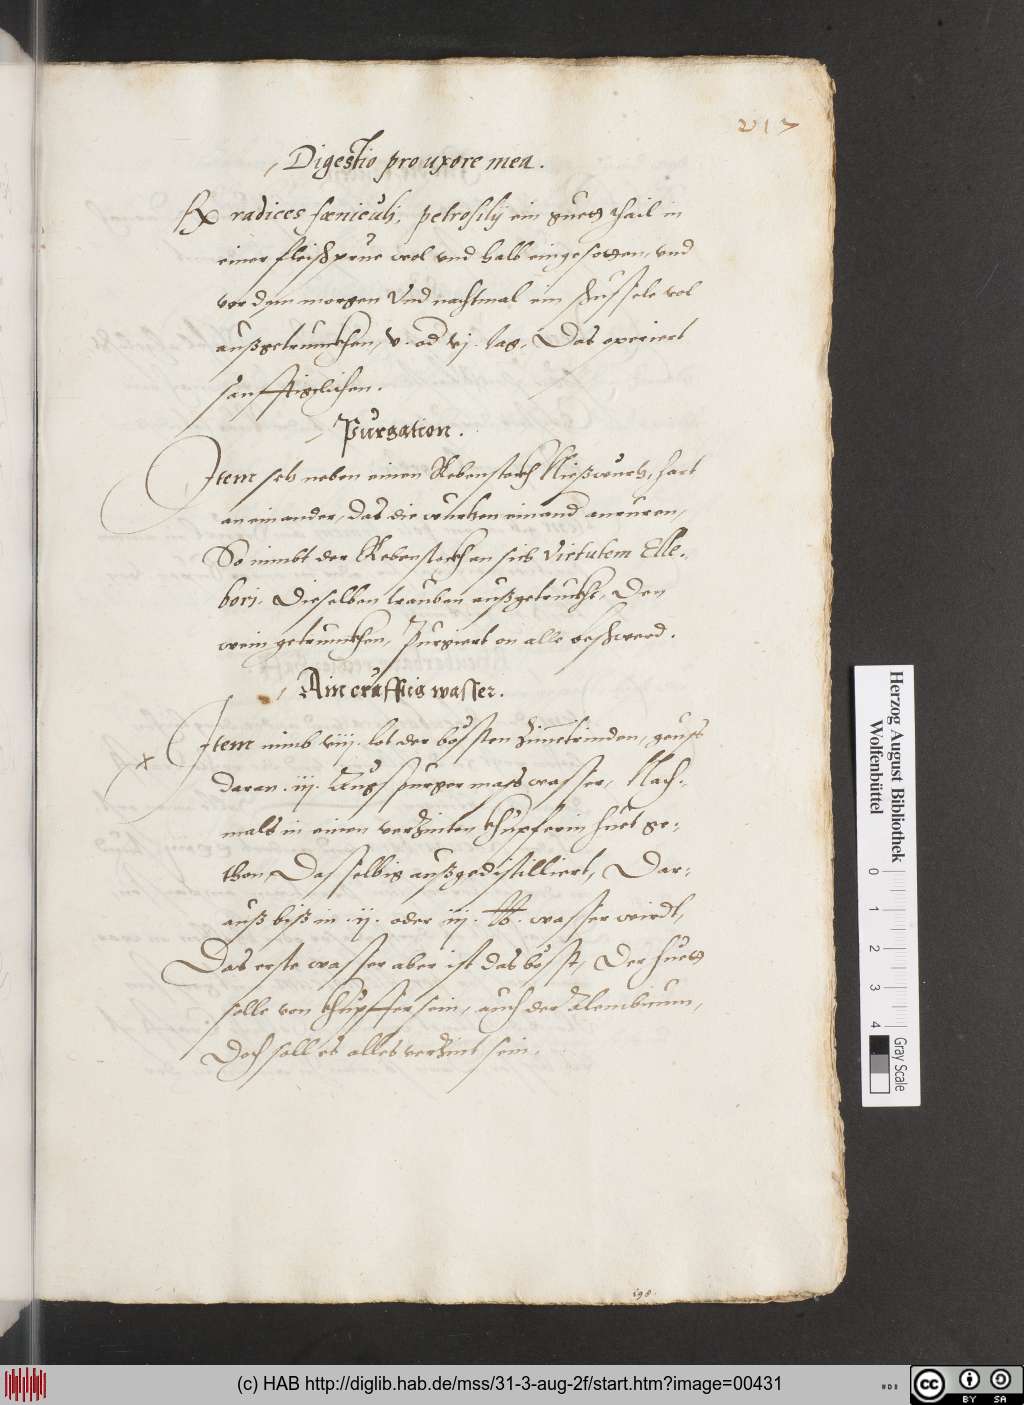 217
Digestio pro uxore mea.
℞ radices fœniculi, petrosilij ein guetz thail in
einer fleischprue wol vnd halb eingesotten, vnd
vor dem morgen vnd nachtmal ein schussele vol
außgetrunckhen, v. od vj. tag, Das operiert
sanfftigelichen.
Purgation.
Item setz neben einen Rebenstockh Nießwurtz, hart
an einander, das die wurtzen einand anruren,
So nimbt der Rebenstockh an sich Virtutem Elle-
bori. Dieselben trauben außgetruckht, Den
wein getrunckhen, Purgiert on alle beschwerd.
Ain crafftig wasser.
x Item nimb viij. lot der bössten Zimetrinden, geuß
daran .iij. Augspurger mass wasser, Nach-
mals in einen verzinten khupferin huet ge-
thon, Das selbig außgedistilliert, Dar-
auß biß in .ij. oder iij. lb. wasser wirdt,
Das erste wasser aber ist das bösst, Der huet
solle von khupffer sein, auch der Alembicum,
Doch soll es alles verzint sein.
198
Herzog August Bibliothek
Wolfenbüttel
0 1 2 3 4
Gray Scale
(c) HAB http://diglib.hab.de/mss/31-3-aug-2f/start.htm?image=00431
cc BY SA